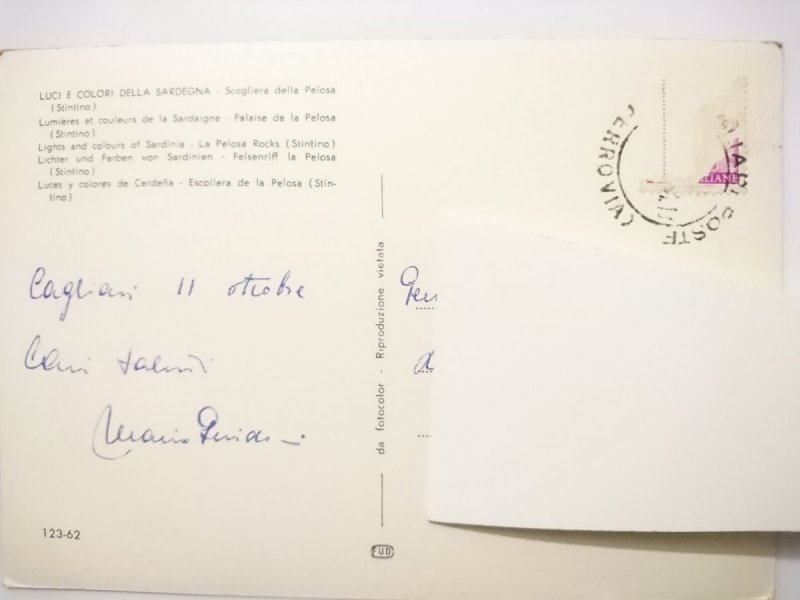 LUCI E COLORI DELLA SARDEGNA - Scogliera della Pelosa
(Stintino)
Lumières et couleurs de la Sardaigne - Falaise de la Pelosa
(Stintino)
Lights and colours of Sardinia - La Pelosa Rocks (Stintino)
Lichter und Farben von Sardinien - Felsenriff la Pelosa
(Stintino)
Luces y colores de Cerdeña - Escollera de la Pelosa (Stin-
tino)
Cagliari 11 ottobre
Cari saluti
Mario
123-62
da fotocolor - Riproduzione vietata
FUD
POSTE
FERROVIA)
LIANE